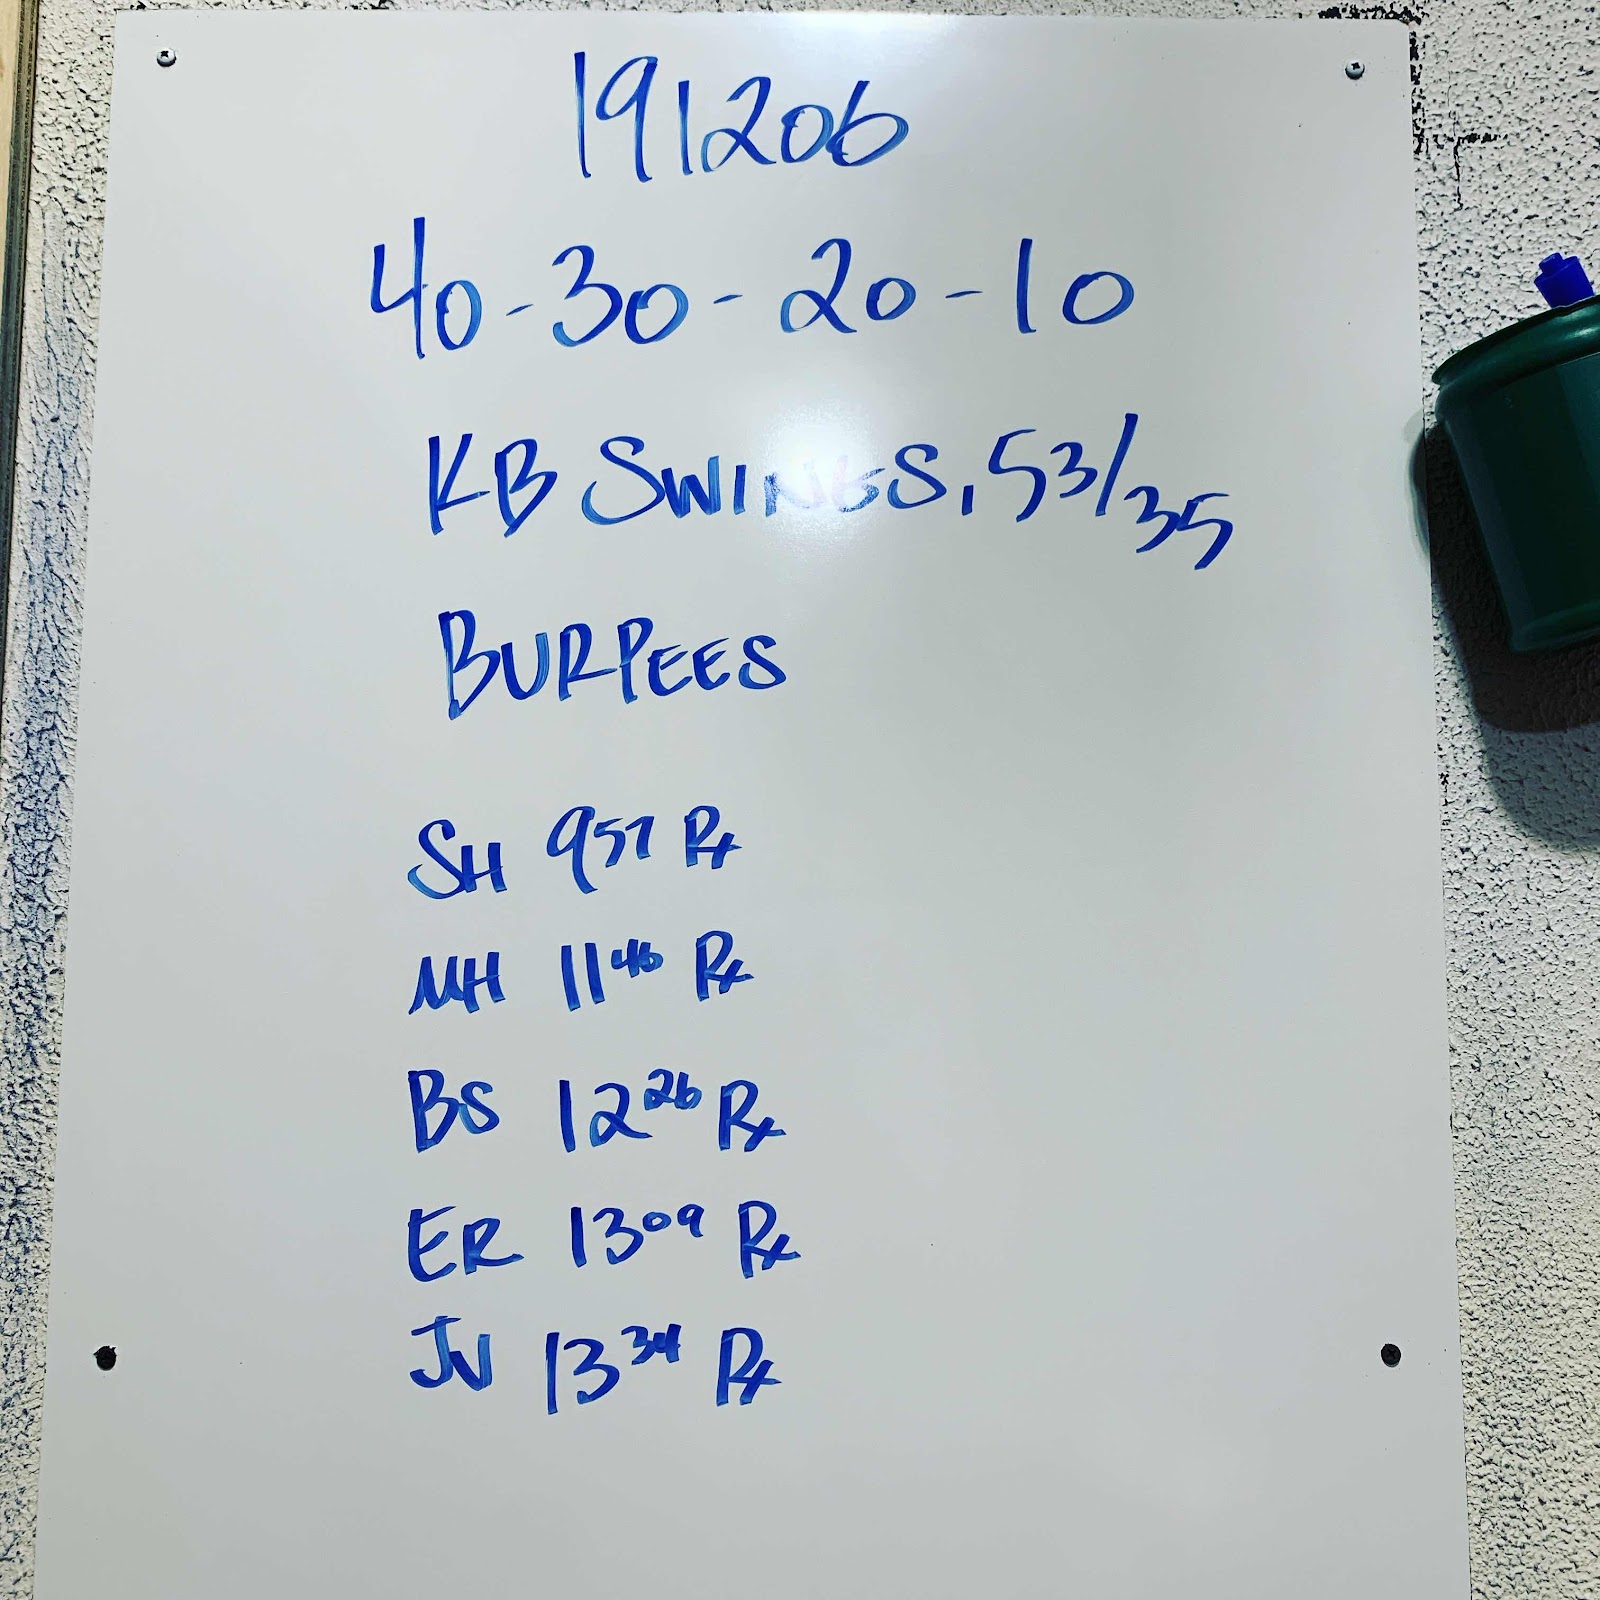 191206
40-30-20-10
KB SWINGS, 53/35
BURPEES
SH 9 57 Rx
MH 11 46 Rx
BS 12 26 Rx
ER 13 09 Rx
JV 13 34 Rx